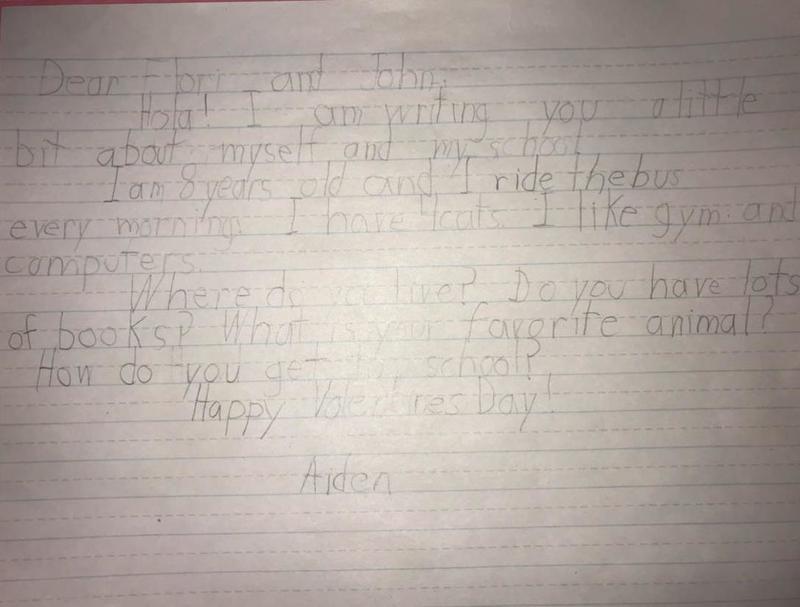 Dear Flori and John,
Hola! I am writing you a little
bit about myself and my school
I am 8 years old and I ride the bus
every morning. I have 4 cats. I like gym and
computers.
Where do you live? Do you have lots
of books? What is your favorite animal?
How do you get to school?
Happy Valentines Day!
Aiden